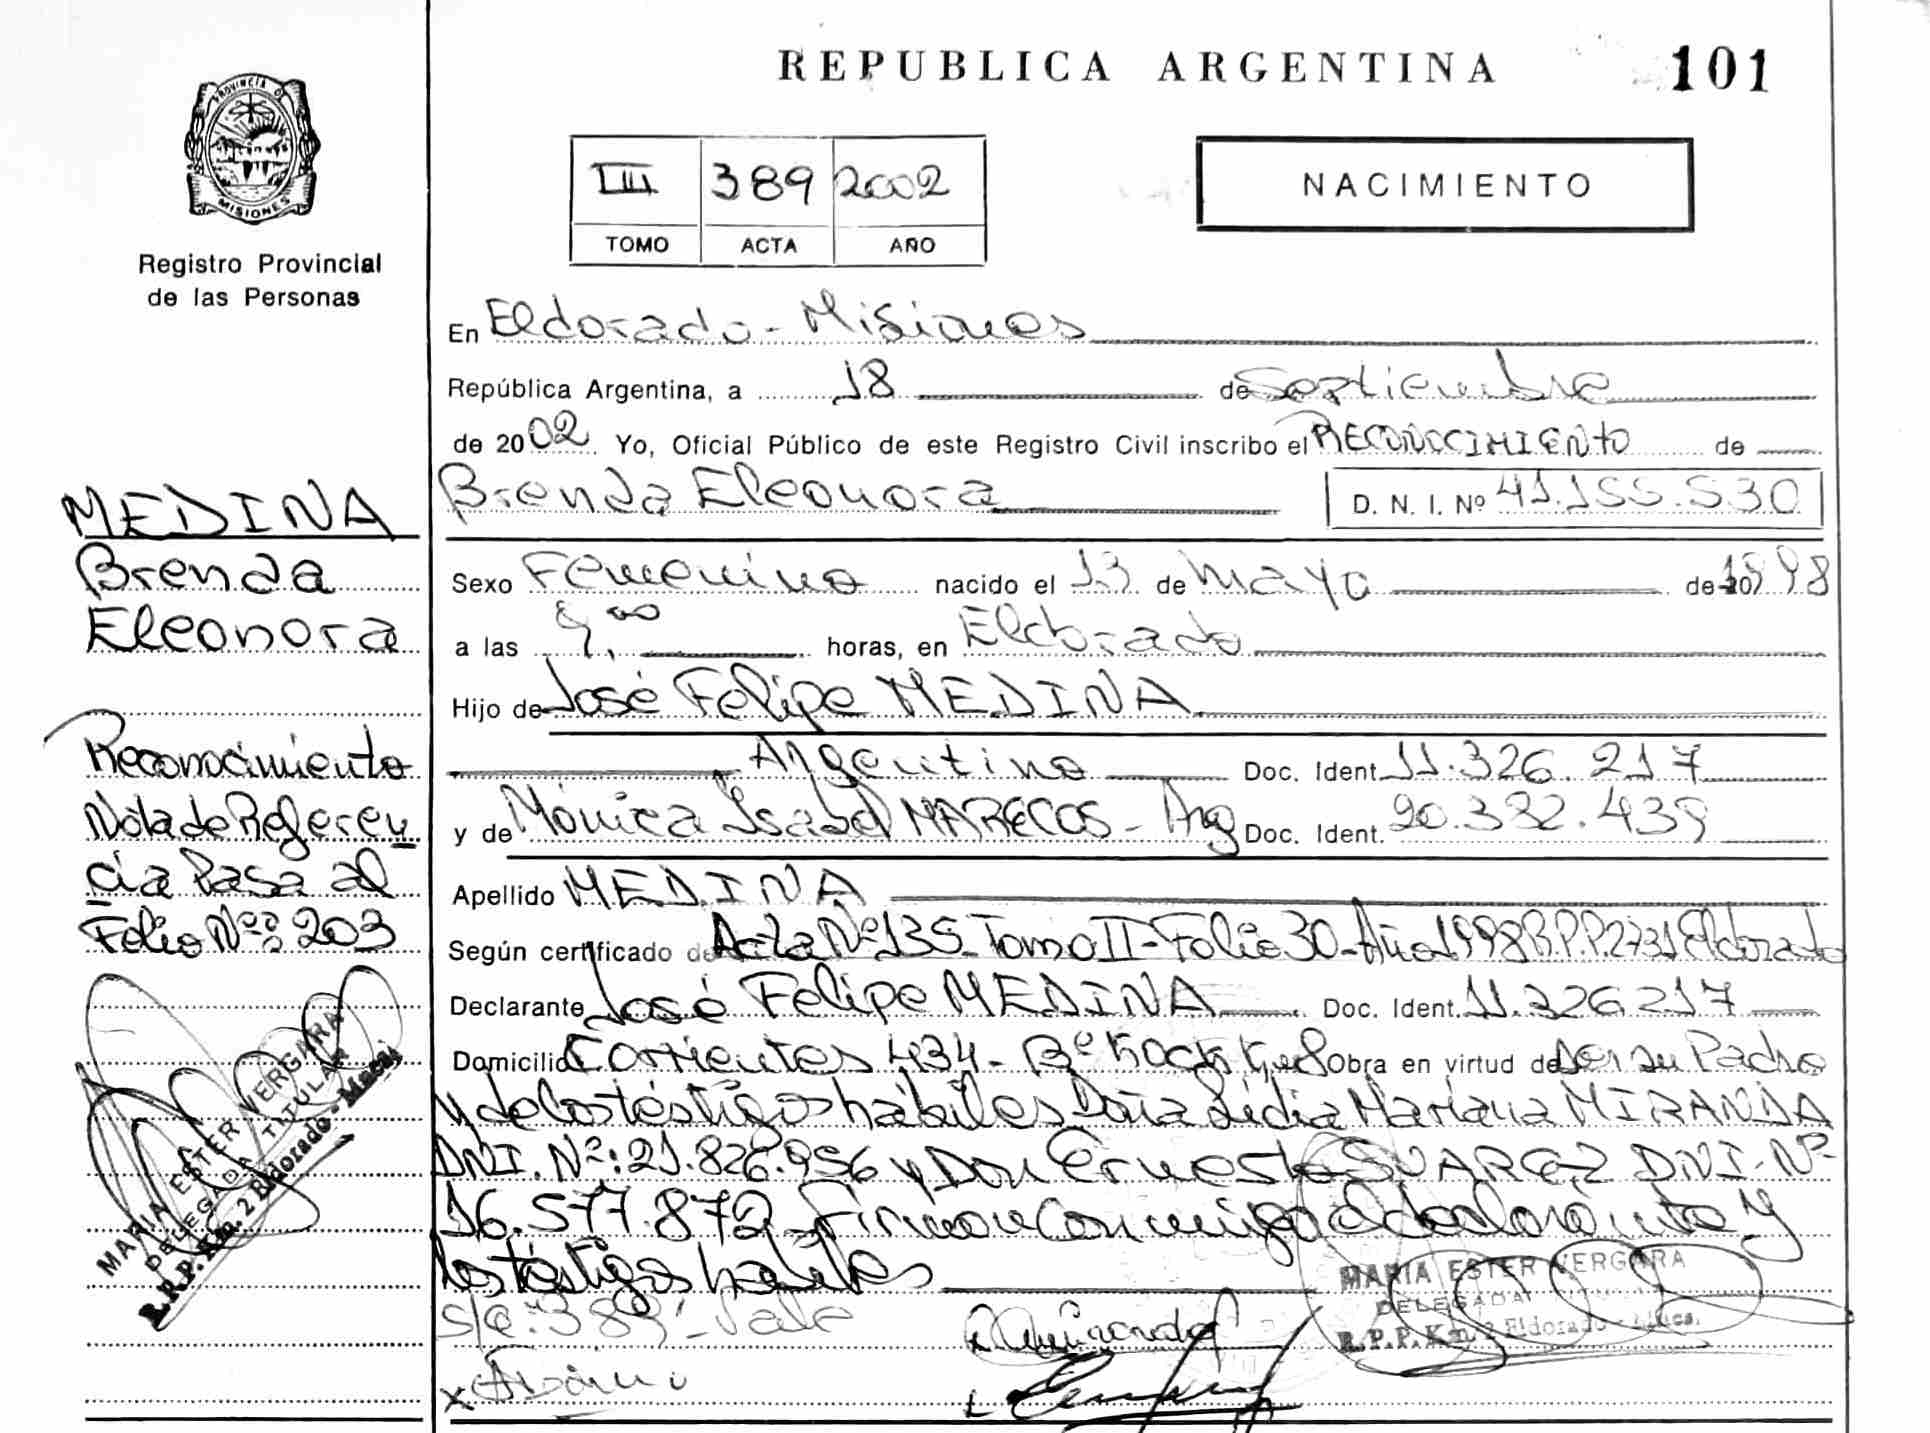 REPUBLICA ARGENTINA 101
PROVINCIA DE
MISIONES
Registro Provincial
de las Personas
III 389 2002
TOMO ACTA AÑO
NACIMIENTO
En Eldorado - Misiones
República Argentina, a 18 de Septiembre
de 2002 Yo, Oficial Público de este Registro Civil inscribo el RECONOCIMIENTO de
Brenda Eleonora D. N. I. Nº 41.155.530
Sexo Femenino nacido el 13 de Mayo de 1998
a las 9,00 horas, en Eldorado
Hijo de José Felipe MEDINA
Argentino Doc. Ident. 11.326.217
y de Mónica Isabel MARECOS - Arg Doc. Ident. 20.382.439
Apellido MEDINA
Según certificado de Acta Nº 135 - Tomo II - Folio 30 - Año 1998 R.P.P. 2731 Eldorado
Declarante José Felipe MEDINA Doc. Ident. 11.326.217
Domicilio Corrientes 434 - Bº Obra en virtud de ser su Padre
y de los téstigos hábiles Doña Lidia Mariana MIRANDA
DNI. Nº: 21.826.956 y Don Ernesto SUAREZ DNI. Nº
16.577.872 - Firman conmigo el declarante y
los téstigos habiles
s/c: 389: Vale
MARIA ESTER VERGARA
DELEGADA TITULAR
R.P.P. Km. 2 Eldorado - Mnes.
MEDINA
Brenda
Eleonora
Reconocimiento
Nota de Referen
cia Pasa al
Folio Nº: 203
MARIA ESTER VERGARA
DELEGADA TITULAR
R.R.P. Km. 2 Eldorado - Mnes.